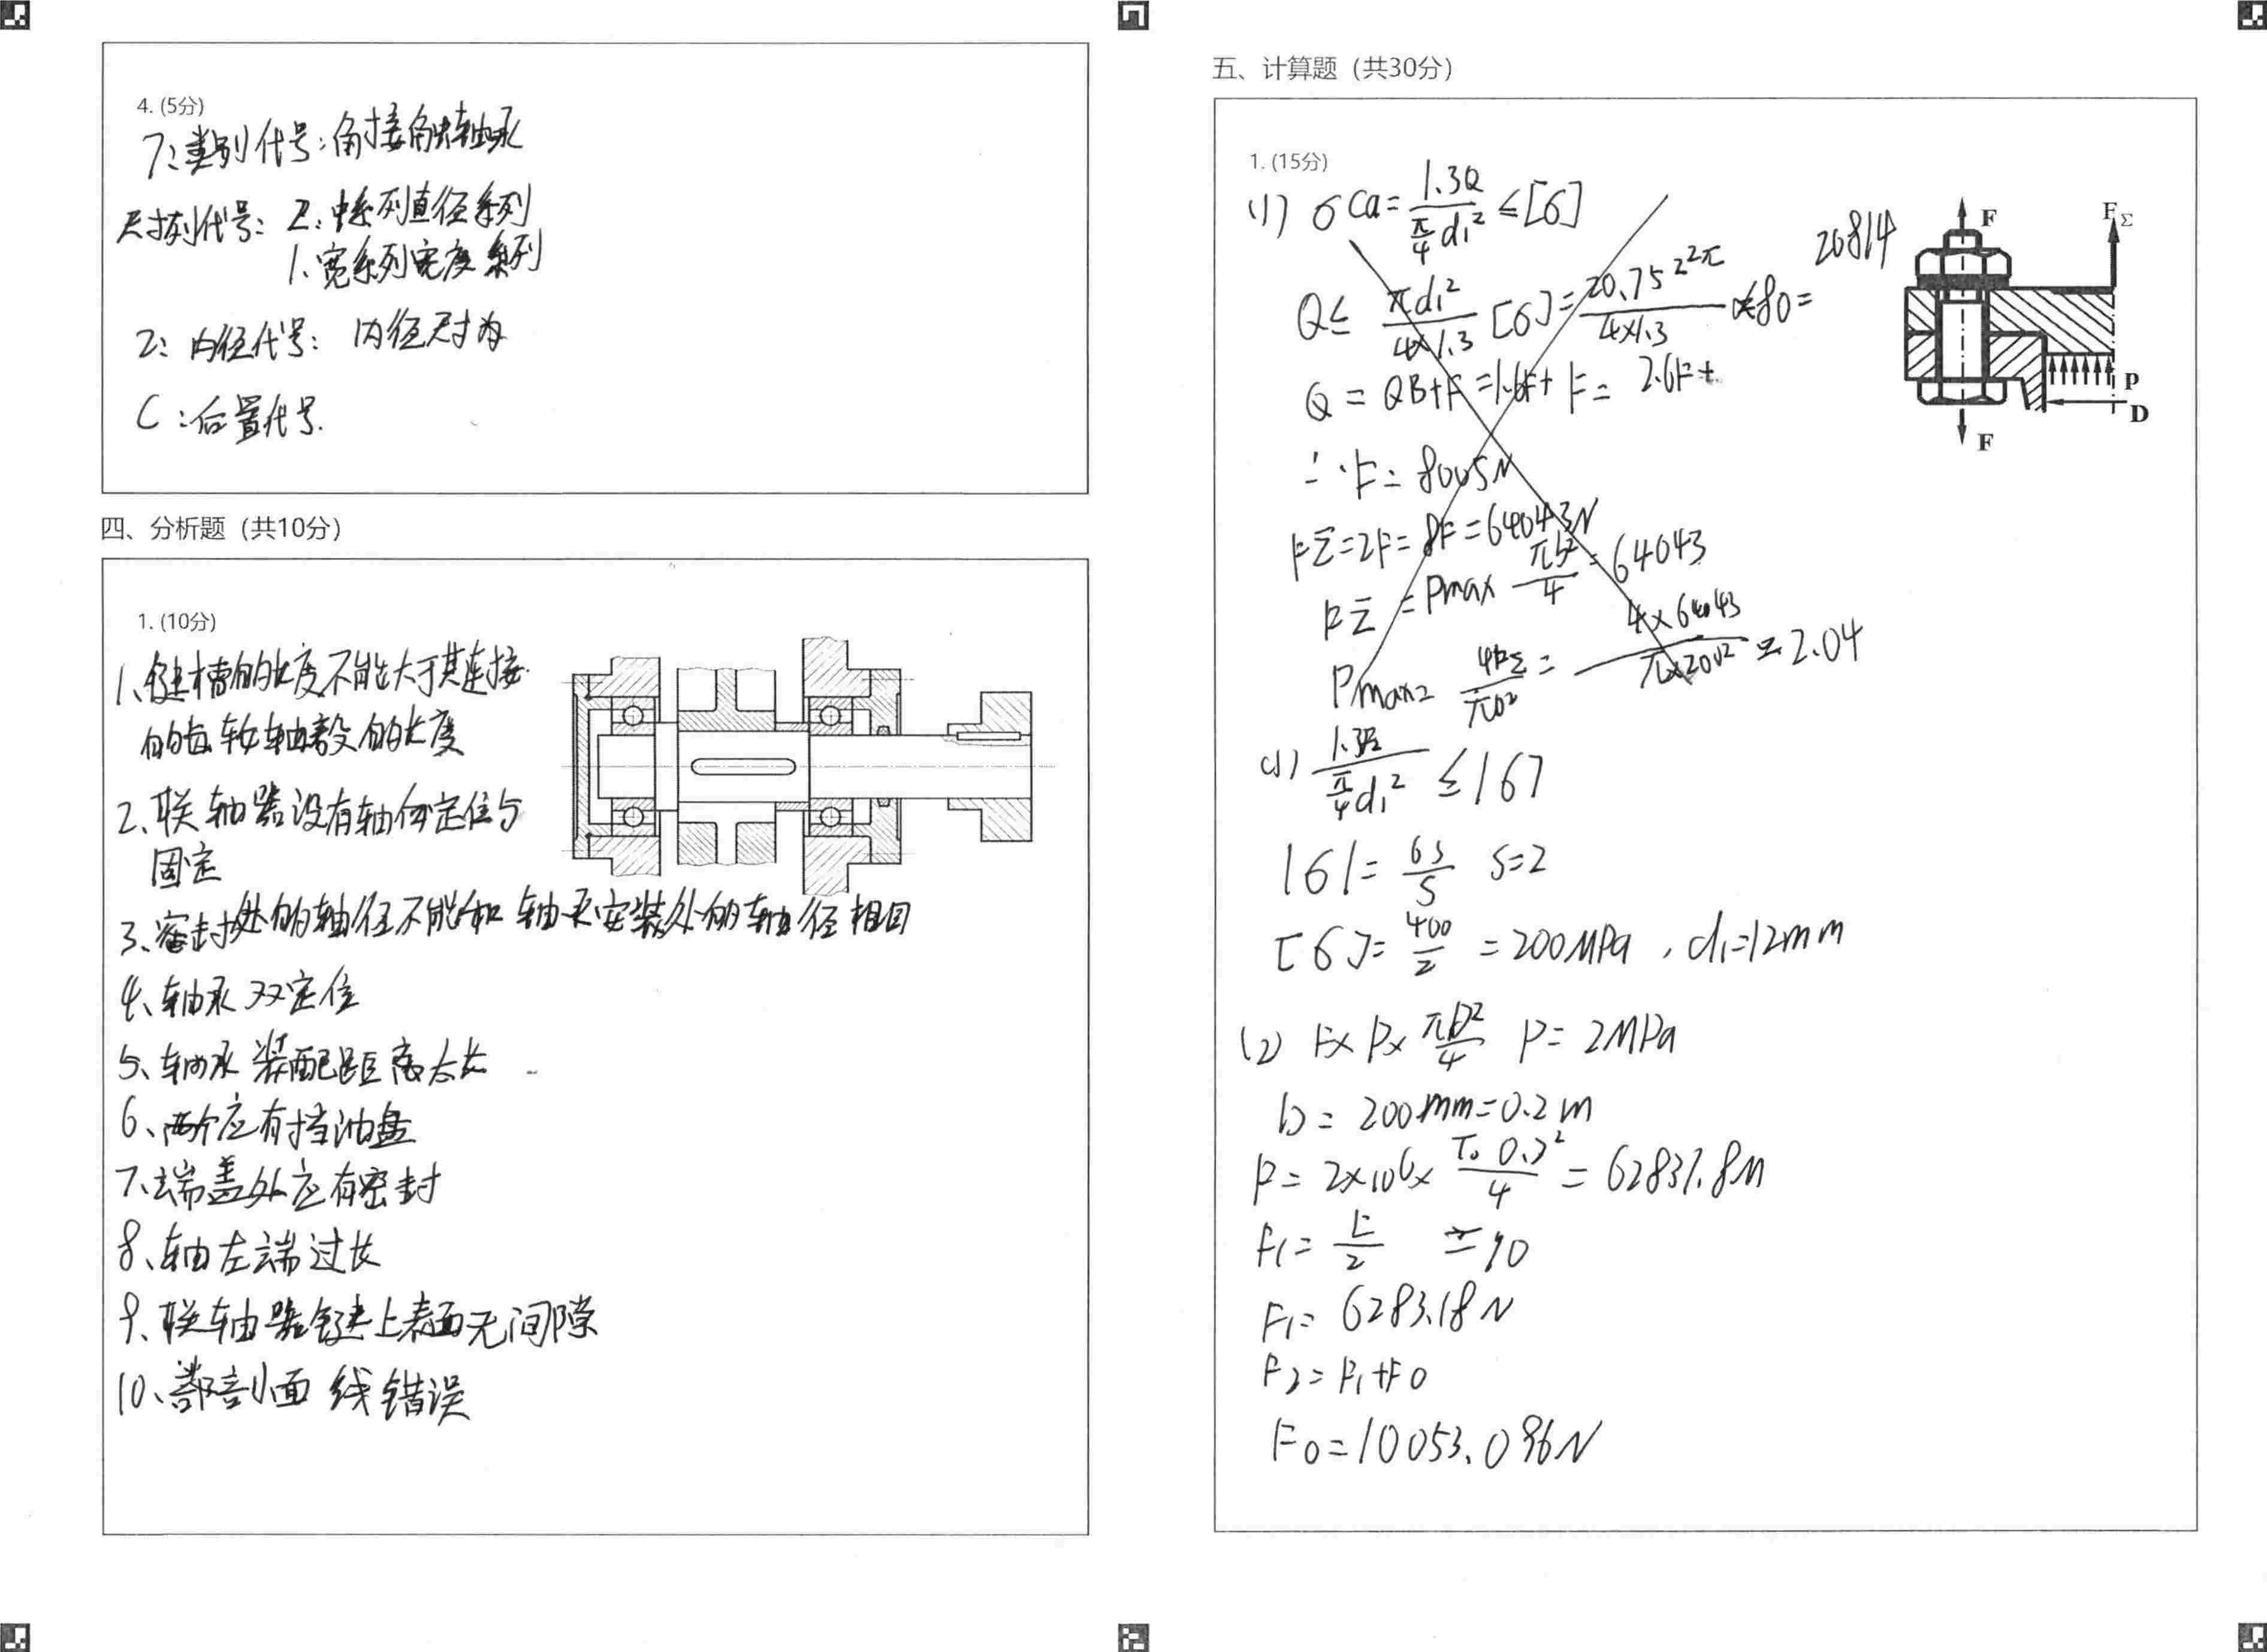 4. (5分)
7：类别代号：角接触轴承
尺寸系列代号：2：中系列直径系列
1、宽系列宽度系列
2：内径代号： 内径尺寸为
C：后置代号.
四、分析题（共10分）
1. (10分)
1、键槽的长度不能大于其连接
的齿轮轴毂的长度
2、联轴器没有轴向定位与
固定
3、密封处的轴径不能和轴承安装处的轴径相同
4、轴承双定位
5、轴承装配距离太长
6、两个应有挡油盘
7、端盖处应有密封
8、轴左端过长
9、联轴器键上表面无间隙
10、剖面线错误
五、计算题（共30分）
1. (15分)
(1) σca = 1.3Q / (π/4 d₁²) ≤ [σ]
Q ≤ πd₁² / (4×1.3) [σ] = 20.752²π / (4×1.3) ×80 = 20814
Q = QB+F = 1.6F+F = 2.6F
∴F = 8005N
FΣ=ZF=8F=64043N
FΣ = Pmax πD²/4 = 64043
Pmax= 4FΣ/πD² = 4×64043 / π×200² = 2.04
F
FΣ
P
D
F
(1) 1.3F₂ / (π/4 d₁²) ≤ [σ]
[σ]= σs/S S=2
[σ]= 400/2 = 200MPa , d₁=12mm
(2) F× P× πD²/4 P= 2MPa
D= 200mm=0.2m
F= 2×10⁶× π·0.2²/4 = 62831.8N
F₁= F/Z Z=10
F₁= 6283.18N
F₂= F₁+F0
F0=10053.096N